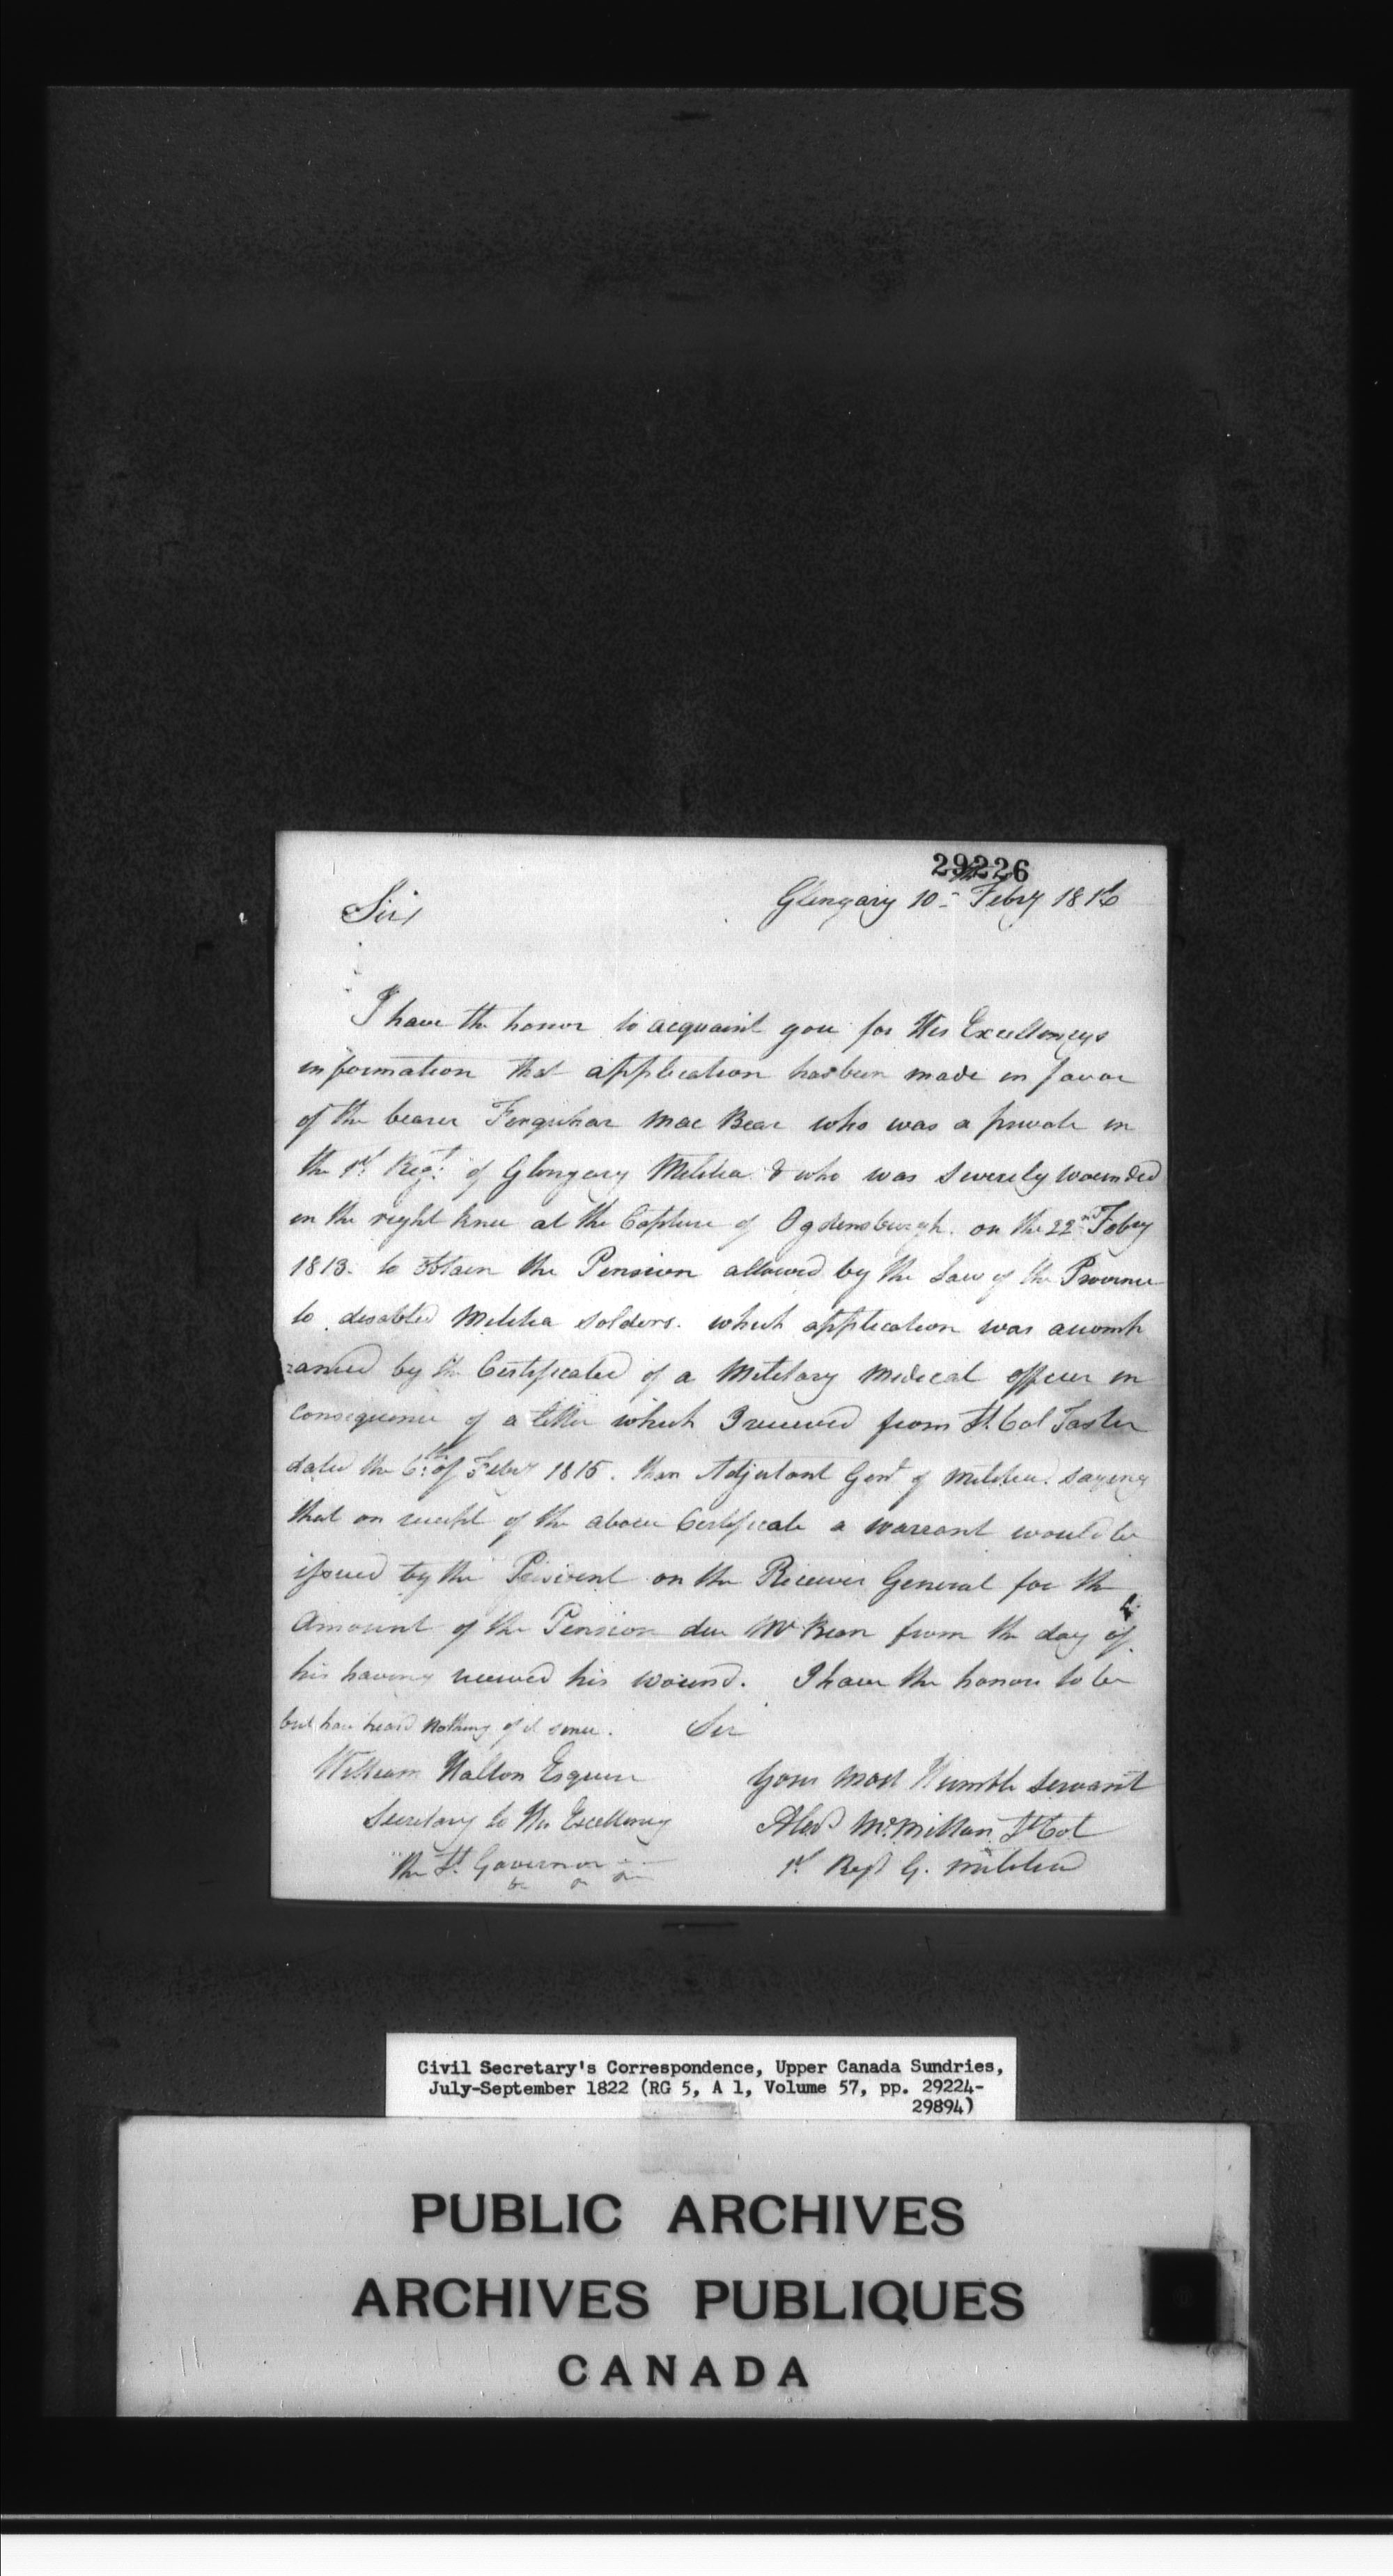 29226
Glengary 10th Febry 1816
Sir,
I have the honor to acquaint you for His Excellencys
information that application has been made in favor
of the bearer Ferquhar Mac Bean who was a private in
the 1st Regt. of Glengary Militia & who was severely wounded
in the right knee at the Capture of Ogdensburgh. on the 22nd Febry
1813. to obtain the Pension allowed by the Law of the Province
to disabled Militia solders. which application was accomp
anied by the Certificated of a Military Medical officer in
Consequence of a letter which I received from Lt. Col
dated the 6th. of Febry 1815. then Adjutant Genl of Militia. saying
that on receipt of the above Certificate a warrant would be
issued by the President on the Receiver General for the
Amount of the Pension due Mc Bean from the day of
his having received his wound. I have the honor to be
but have heard nothing of it since. Sir
William Halton Esquire
Your Most Humble Servant
Secretary to His Excellency
Alexd McMillan Lt Col
the Lt. Governor
1st Regt G. Militia
Civil Secretary's Correspondence, Upper Canada Sundries,
July-September 1822 (RG 5, A 1, Volume 57, pp. 29224-
29894)
PUBLIC ARCHIVES
ARCHIVES PUBLIQUES
CANADA